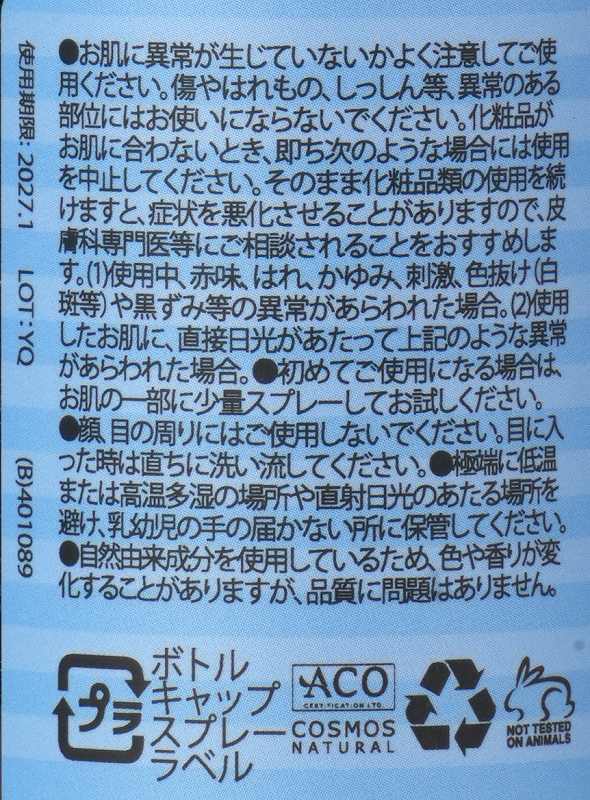 ●お肌に異常が生じていないかよく注意してご使
用ください。傷やはれもの、しっしん等、異常のある
部位にはお使いにならないでください。化粧品が
お肌に合わないとき、即ち次のような場合には使用
を中止してください。そのまま化粧品類の使用を続
けますと、症状を悪化させることがありますので、皮
膚科専門医等にご相談されることをおすすめしま
す。(1)使用中、赤味、はれ、かゆみ、刺激、色抜け(白
斑等)や黒ずみ等の異常があらわれた場合。(2)使用
したお肌に、直接日光があたって上記のような異常
があらわれた場合。●初めてご使用になる場合は、
お肌の一部に少量スプレーしてお試しください。
●顔、目の周りにはご使用しないでください。目に入
った時は直ちに洗い流してください。●極端に低温
または高温多湿の場所や直射日光のあたる場所を
避け、乳幼児の手の届かない所に保管してください。
●自然由来成分を使用しているため、色や香りが変
化することがありますが、品質に問題はありません。
使用期限: 2027.1 LOT:YQ (B)401089
プラ
ボトル
キャップ
スプレー
ラベル
ACO
CERTIFICATION LTD.
COSMOS
NATURAL
NOT TESTED
ON ANIMALS